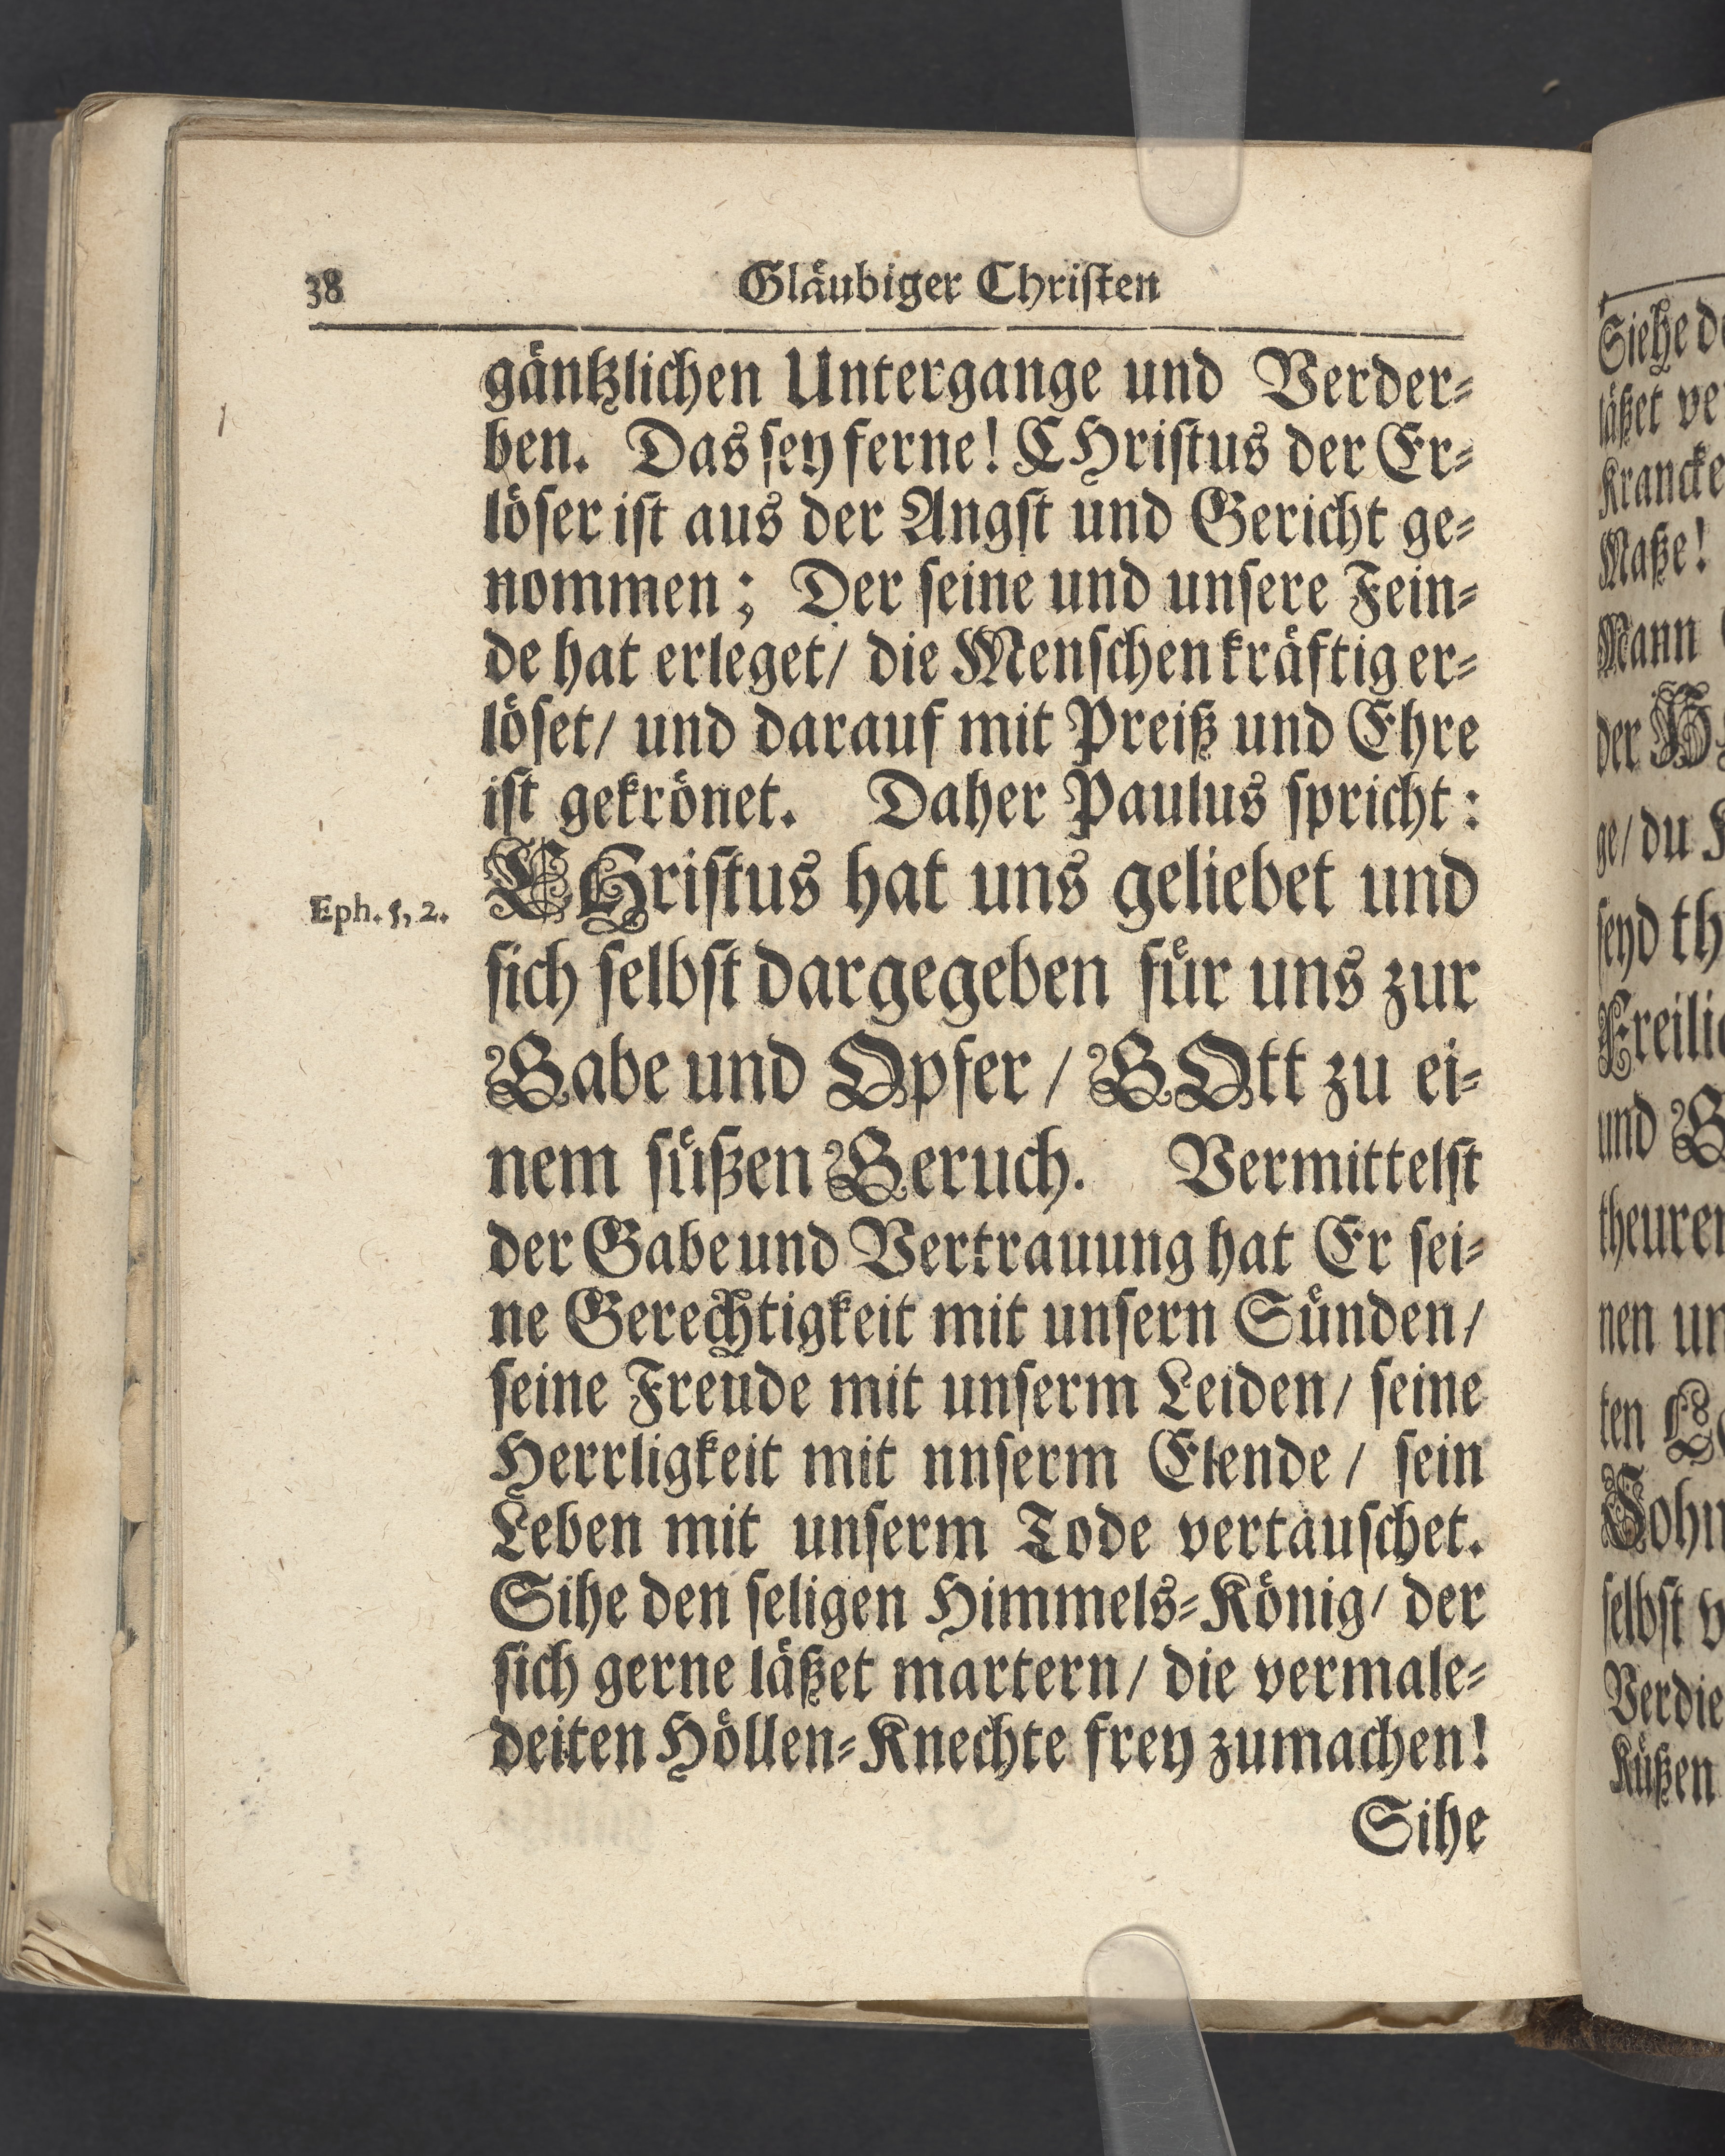 38 Gläubiger Christen
gäntzlichen Untergange und Verder-
ben. Das sey ferne! CHristus der Er-
löser ist aus der Angst und Gericht ge-
nommen; Der seine und unsere Fein-
de hat erleget/ die Menschen kräftig er-
löset/ und darauf mit Preiß und Ehre
ist gekrönet. Daher Paulus spricht:
Eph. 5, 2. CHristus hat uns geliebet und
sich selbst dargegeben für uns zur
Gabe und Opfer / GOtt zu ei-
nem süßen Geruch. Vermittelst
der Gabe und Vertrauung hat Er sei-
ne Gerechtigkeit mit unsern Sünden/
seine Freude mit unserm Leiden/ seine
Herrligkeit mit nnserm Elende / sein
Leben mit unserm Tode vertauschet.
Sihe den seligen Himmels-König/ der
sich gerne läßet martern/ die vermale-
deiten Höllen-Knechte frey zumachen!
Sihe
Siehe
läßet
Krancke
Maße!
Mann
der
ge/ du
seyd
und
theuren
nen
ten
selbst
Küßen